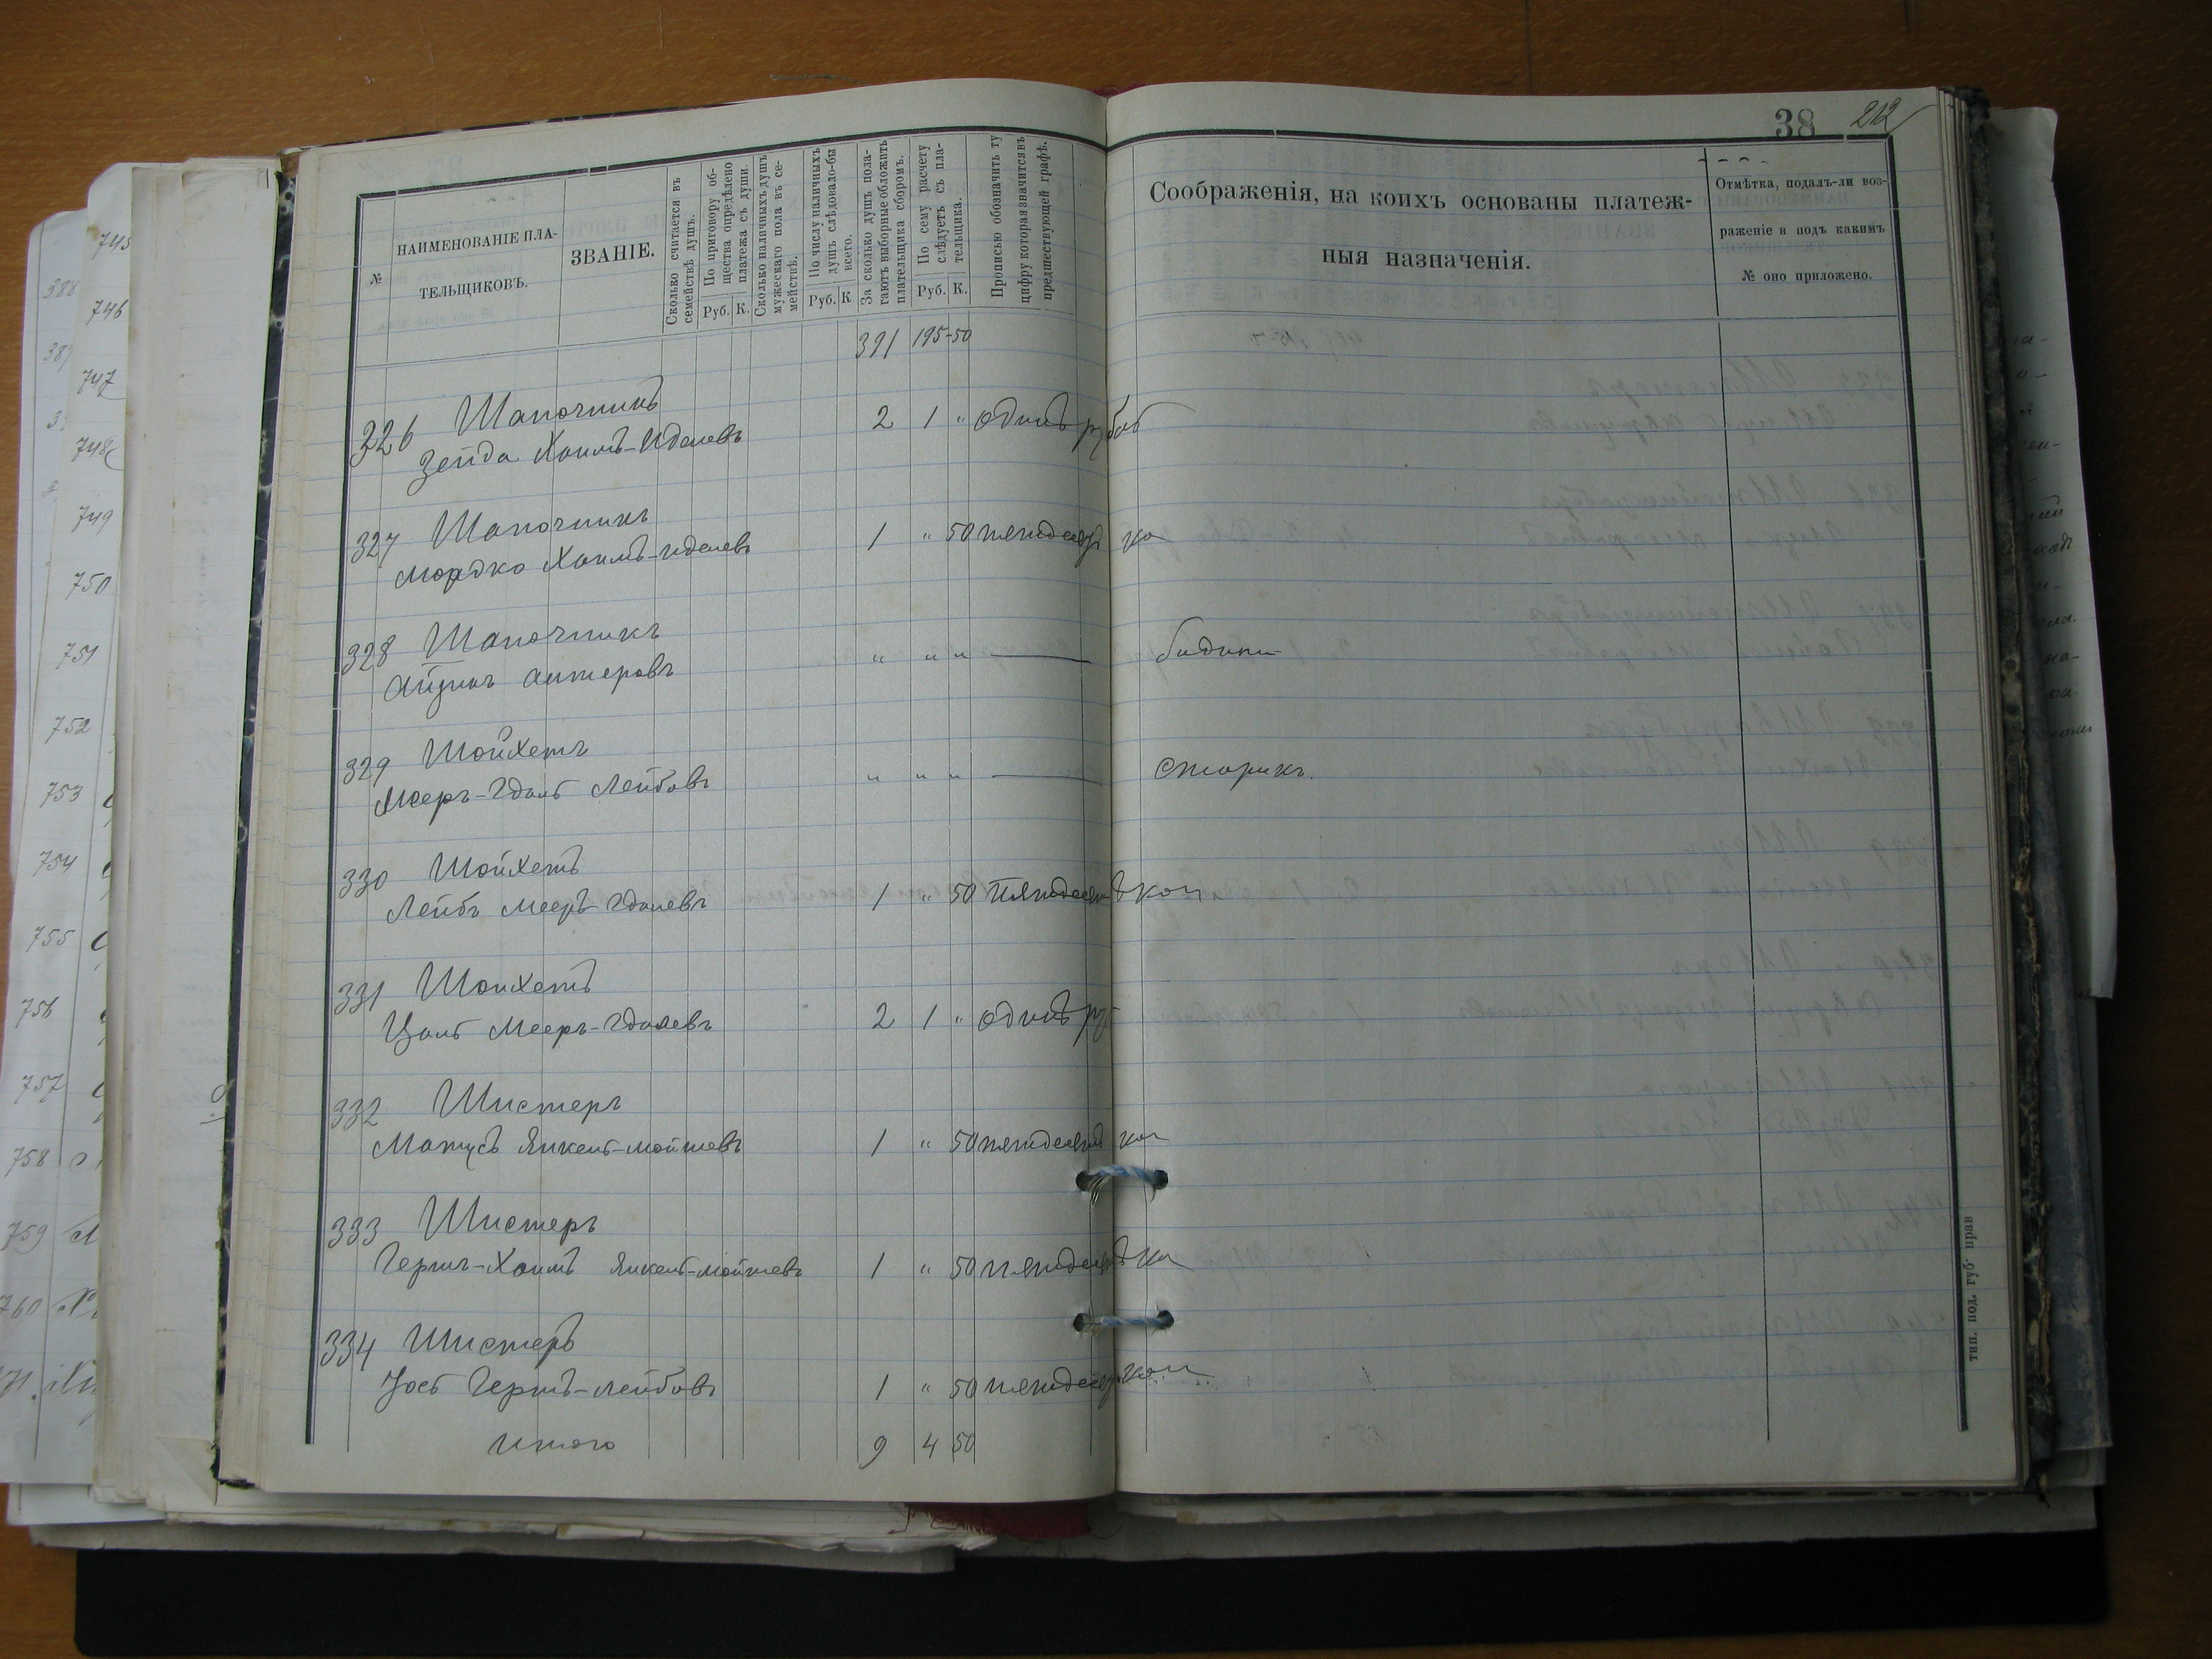 38 212
№
НАИМЕНОВАНІЕ ПЛА-
ТЕЛЬЩИКОВЪ.
ЗВАНІЕ.
Сколько считается въ
семействѣ душъ.
По приговору об-
щества опредѣлено
платежа съ души.
Руб. К.
Сколько наличныхъ душъ
мужескаго пола въ се-
мействѣ.
По числу наличныхъ
душъ слѣдовало-бы
всего.
Руб. К
За сколько душъ пола-
гаютъ выборные обложить
плательщика сборомъ.
По сему расчету
слѣдуетъ съ пла-
тельщика.
Руб. К.
Прописью обозначить ту
цифру которая значится въ
предшествующей графѣ.
Соображенія, на коихъ основаны платеж-
ныя назначенія.
Отмѣтка, подалъ-ли воз-
раженіе и подъ какимъ
№ оно приложено.
391 195-50
326 Шапочникъ
Зейда Хаимъ-Иделевъ 2 1 " одинъ рубл
327 Шапочникъ
Мордко Хаимъ-Иделевъ 1 " 50 пятдесят ко
328 Шапочникъ
" " " —
329 Шойхетъ
Мееръ-Гдаль Лейбовъ " " " — старикъ.
330 Шойхетъ
Лейбъ Мееръ-Гдалевъ 1 " 50 пятдесятъ коп
331 Шойхетъ
Цаль Мееръ-Гдалевъ 2 1 " одинъ руб
332 Шистеръ
Матусъ Янкель-Мойшевъ 1 " 50 пятдесятъ коп
333 Шистеръ
Гершъ-Хаимъ Янкель-Мойшевъ 1 " 50 пятдесятъ ко
334 Шистеръ
Гершъ-Лейбовъ 1 " 50 пятдесят коп
Итого 9 4 50
тип. под. губ. прав
745
746
747
748
749
750
751
752
753
754
755
756
757
758
759
760